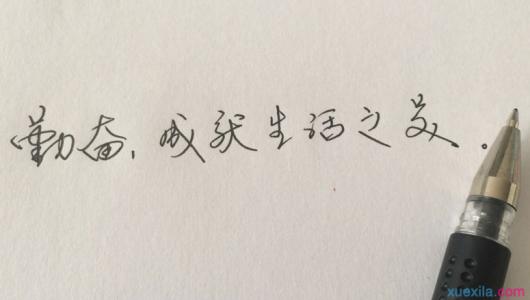 勤奋,成就生活之美。
xuexila.com